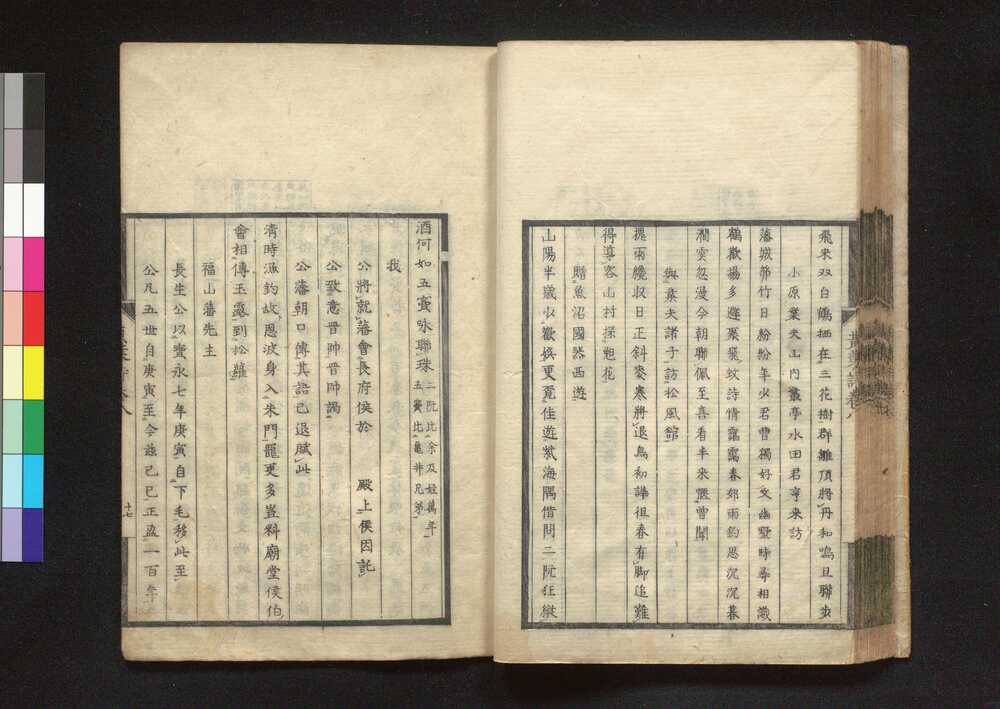 飛來双白鶴栖在三花樹群雛頂將丹和鳴且聯步
小原業夫山内叢亭水田君亨來訪
藩城節竹日紛紛年少君曹獨好文幽墅時尋相識
鶴歡揚多避聚蚊詩情靄靄春郊雨釣思沉沉暮
澗雲忽漫今朝聯佩至喜看半來慝曾聞
與業夫諸子訪松風館
擾雨纔収日正斜麥寒將退鳥初譁徂春有脚追難
得導客山村探剩花
贈魚沼國器西遊
山陽半歳少歡娯更覓佳遊紫海隅借問二阮狂
酒何如五竇咏聯珠二阮比余及姪萬年五竇比龜井兄弟
我
公將就藩會長府侯於 殿上侯因託
公致意晋帥晋帥謁
公藩朝口傳其語已退賦此
清時漁釣故恩波身入朱門寵更多豈料廟堂侯伯
會相傳玉露到松蘿
福山藩先主
長生公以寳永七年庚寅自下毛移此至
公凡五世自庚寅至今茲己巳正盈一百年
十七